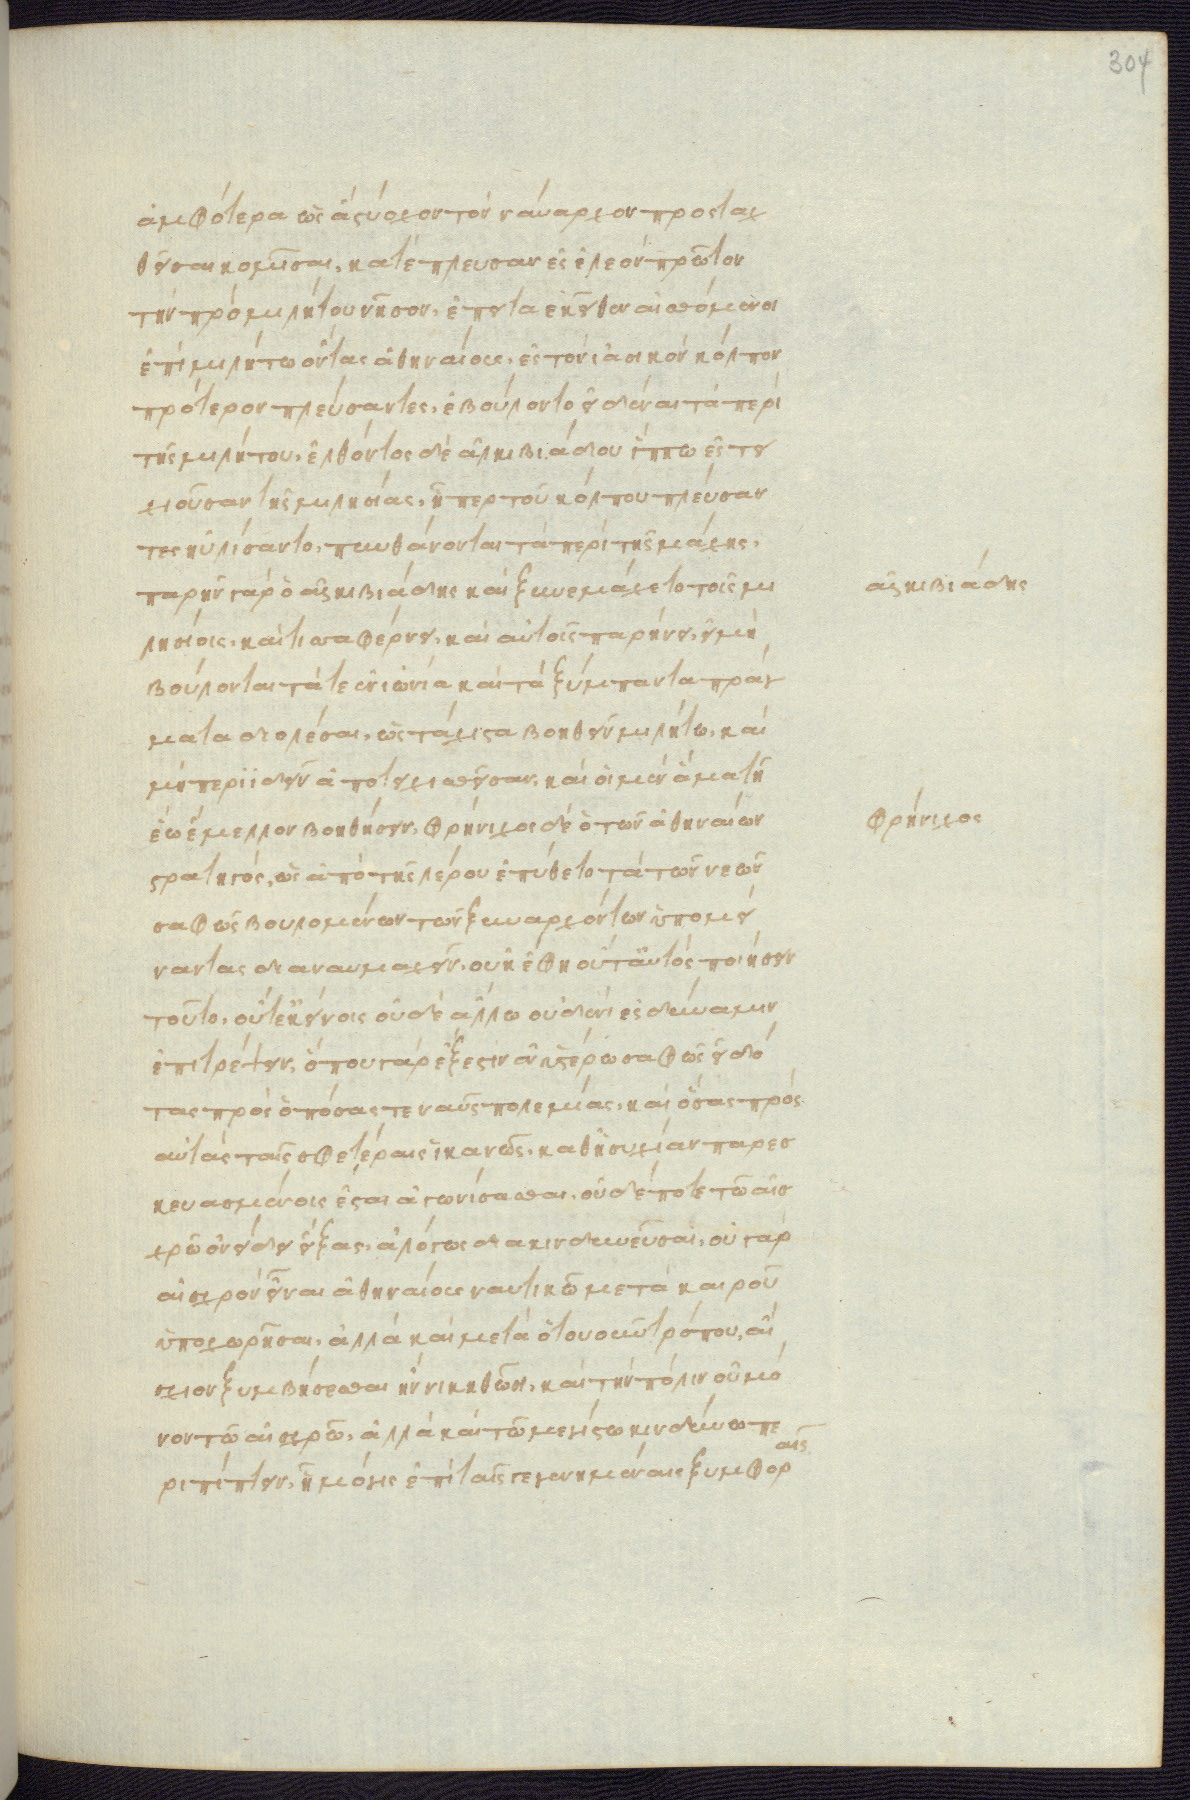 ἀμφότερα ὡς ἀστύοχον τὸν ναύαρχον προσταχ
θεῖσαι κομῖσαι, κατέπλευσαν ἐς ἐλεὸν πρῶτον
τὴν πρὸ μιλήτου νῆσον, ἔπειτα ἐκεῖθεν αἰσθόμενοι
ἐπὶ μιλήτω ὄντας ἀθηναίους, ἐς τὸν ἰασικὸν κόλπον
πρότερον πλεύσαντες, ἐβούλοντο εἰδέναι τὰ περὶ
τῆς μιλήτου, ἐλθόντος δὲ ἀλκιβιάδου ἵππω ἐς τει
χιοῦσαν τῆς μιλησίας, ἧπερ τοῦ κόλπου πλεύσαν
τες ηὐλίσαντο, πυνθάνονται τὰ περὶ τῆς μάχης,
παρῆν γὰρ ὁ ἀλκιβιάδης καὶ ξυνεμάχετο τοῖς μι
λησίοις, καὶ τισσαφέρνει, καὶ αὐτοῖς παρήνει, εἰ μὴ
βούλονται τά τε ἐν ἰωνία καὶ τὰ ξύμπαντα πράγ
ματα διολέσαι, ὡς τάχιστα βοηθεῖν μιλήτω, καὶ
μὴ περιϊδεῖν ἀποτειχισθεῖσαν, καὶ οἱ μὲν ἅμα τῆ
ἕω ἔμελλον βοηθήσειν, φρήνιχος δὲ ὁ τῶν ἀθηναίων
στρατηγός, ὡς ἀπὸ τῆς λέρου ἐπύθετο τὰ τῶν νεῶν
σαφῶς βουλομένων τῶν ξυναρχόντων ὑπομεί
ναντας διαναυμαχεῖν, οὐκ ἔφη οὔτ' αὐτὸς ποιήσειν
τοῦτο, οὔτ' ἐκείνοις οὐδὲ ἄλλω οὐδενὶ ἐς δύναμιν
ἐπιτρέψειν, ὅπου γὰρ ἔξεστιν ἐν ὑστέρω σαφῶς εἰδό
τας πρὸς ὁπόσας τε ναῦς πολεμίας, καὶ ὅσας πρὸς
αὐτὰς ταῖς σφετέραις ἱκανῶς, καθ' ἡσυχίαν παρεσ
κευασμένοις ἔσται ἀγωνίσασθαι, οὐδέποτε τῶ αἰσ
χρῶ ὀνείδει εἴξας, ἀλόγως διακινδυνεῦσαι, οὐ γὰρ
αἰσχρὸν εἶναι ἀθηναίους ναυτικῶ μετὰ καιροῦ
ὑποχωρῆσαι, ἀλλὰ καὶ μετὰ ὁτουοῦν τρόπου, αἴ
σχιον ξυμβήσεσθαι ἢν νικηθῶσι, καὶ τὴν πόλιν οὐ μό
νον τῶ αἰσχρῶ, ἀλλὰ καὶ τῶ μεγίστω κινδύνω πε
ριπίπτειν, ἧ μόγις ἐπὶ ταῖς γεγενημέναις ξυμφοραῖς
ἀλκιβιάδης
φρήνιχος
304